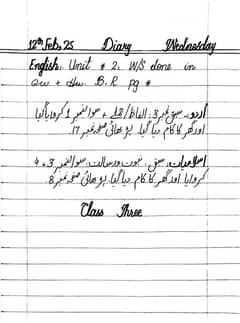 12th Feb, 25 Diary Wednesday
English: Unit # 2. W/S done in
C.W + H.W. B.R pg #
اردو: سبق نمبر 3: الفاظ/ جملے + سوالنمبر 1 کروایا گیا
اور گھر کا کام دیا گیا۔ پڑھائی صفحہ نمبر 17.
اسلامیات: سبق: نبوت و رسالت، سوالنمبر 3 + 4
کروایا اور گھر کا کام دیا گیا۔ پڑھائی صفحہ نمبر 8.
Class Three